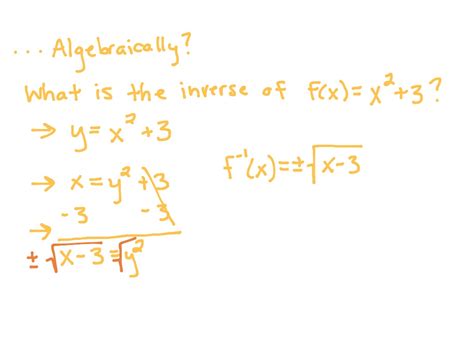 ... Algebraically?
What is the inverse of f(x) = x² + 3?
→ y = x² + 3
→ x = y² + 3
- 3 - 3
→
± √x - 3 = √y²
f⁻¹(x) = ± √x - 3